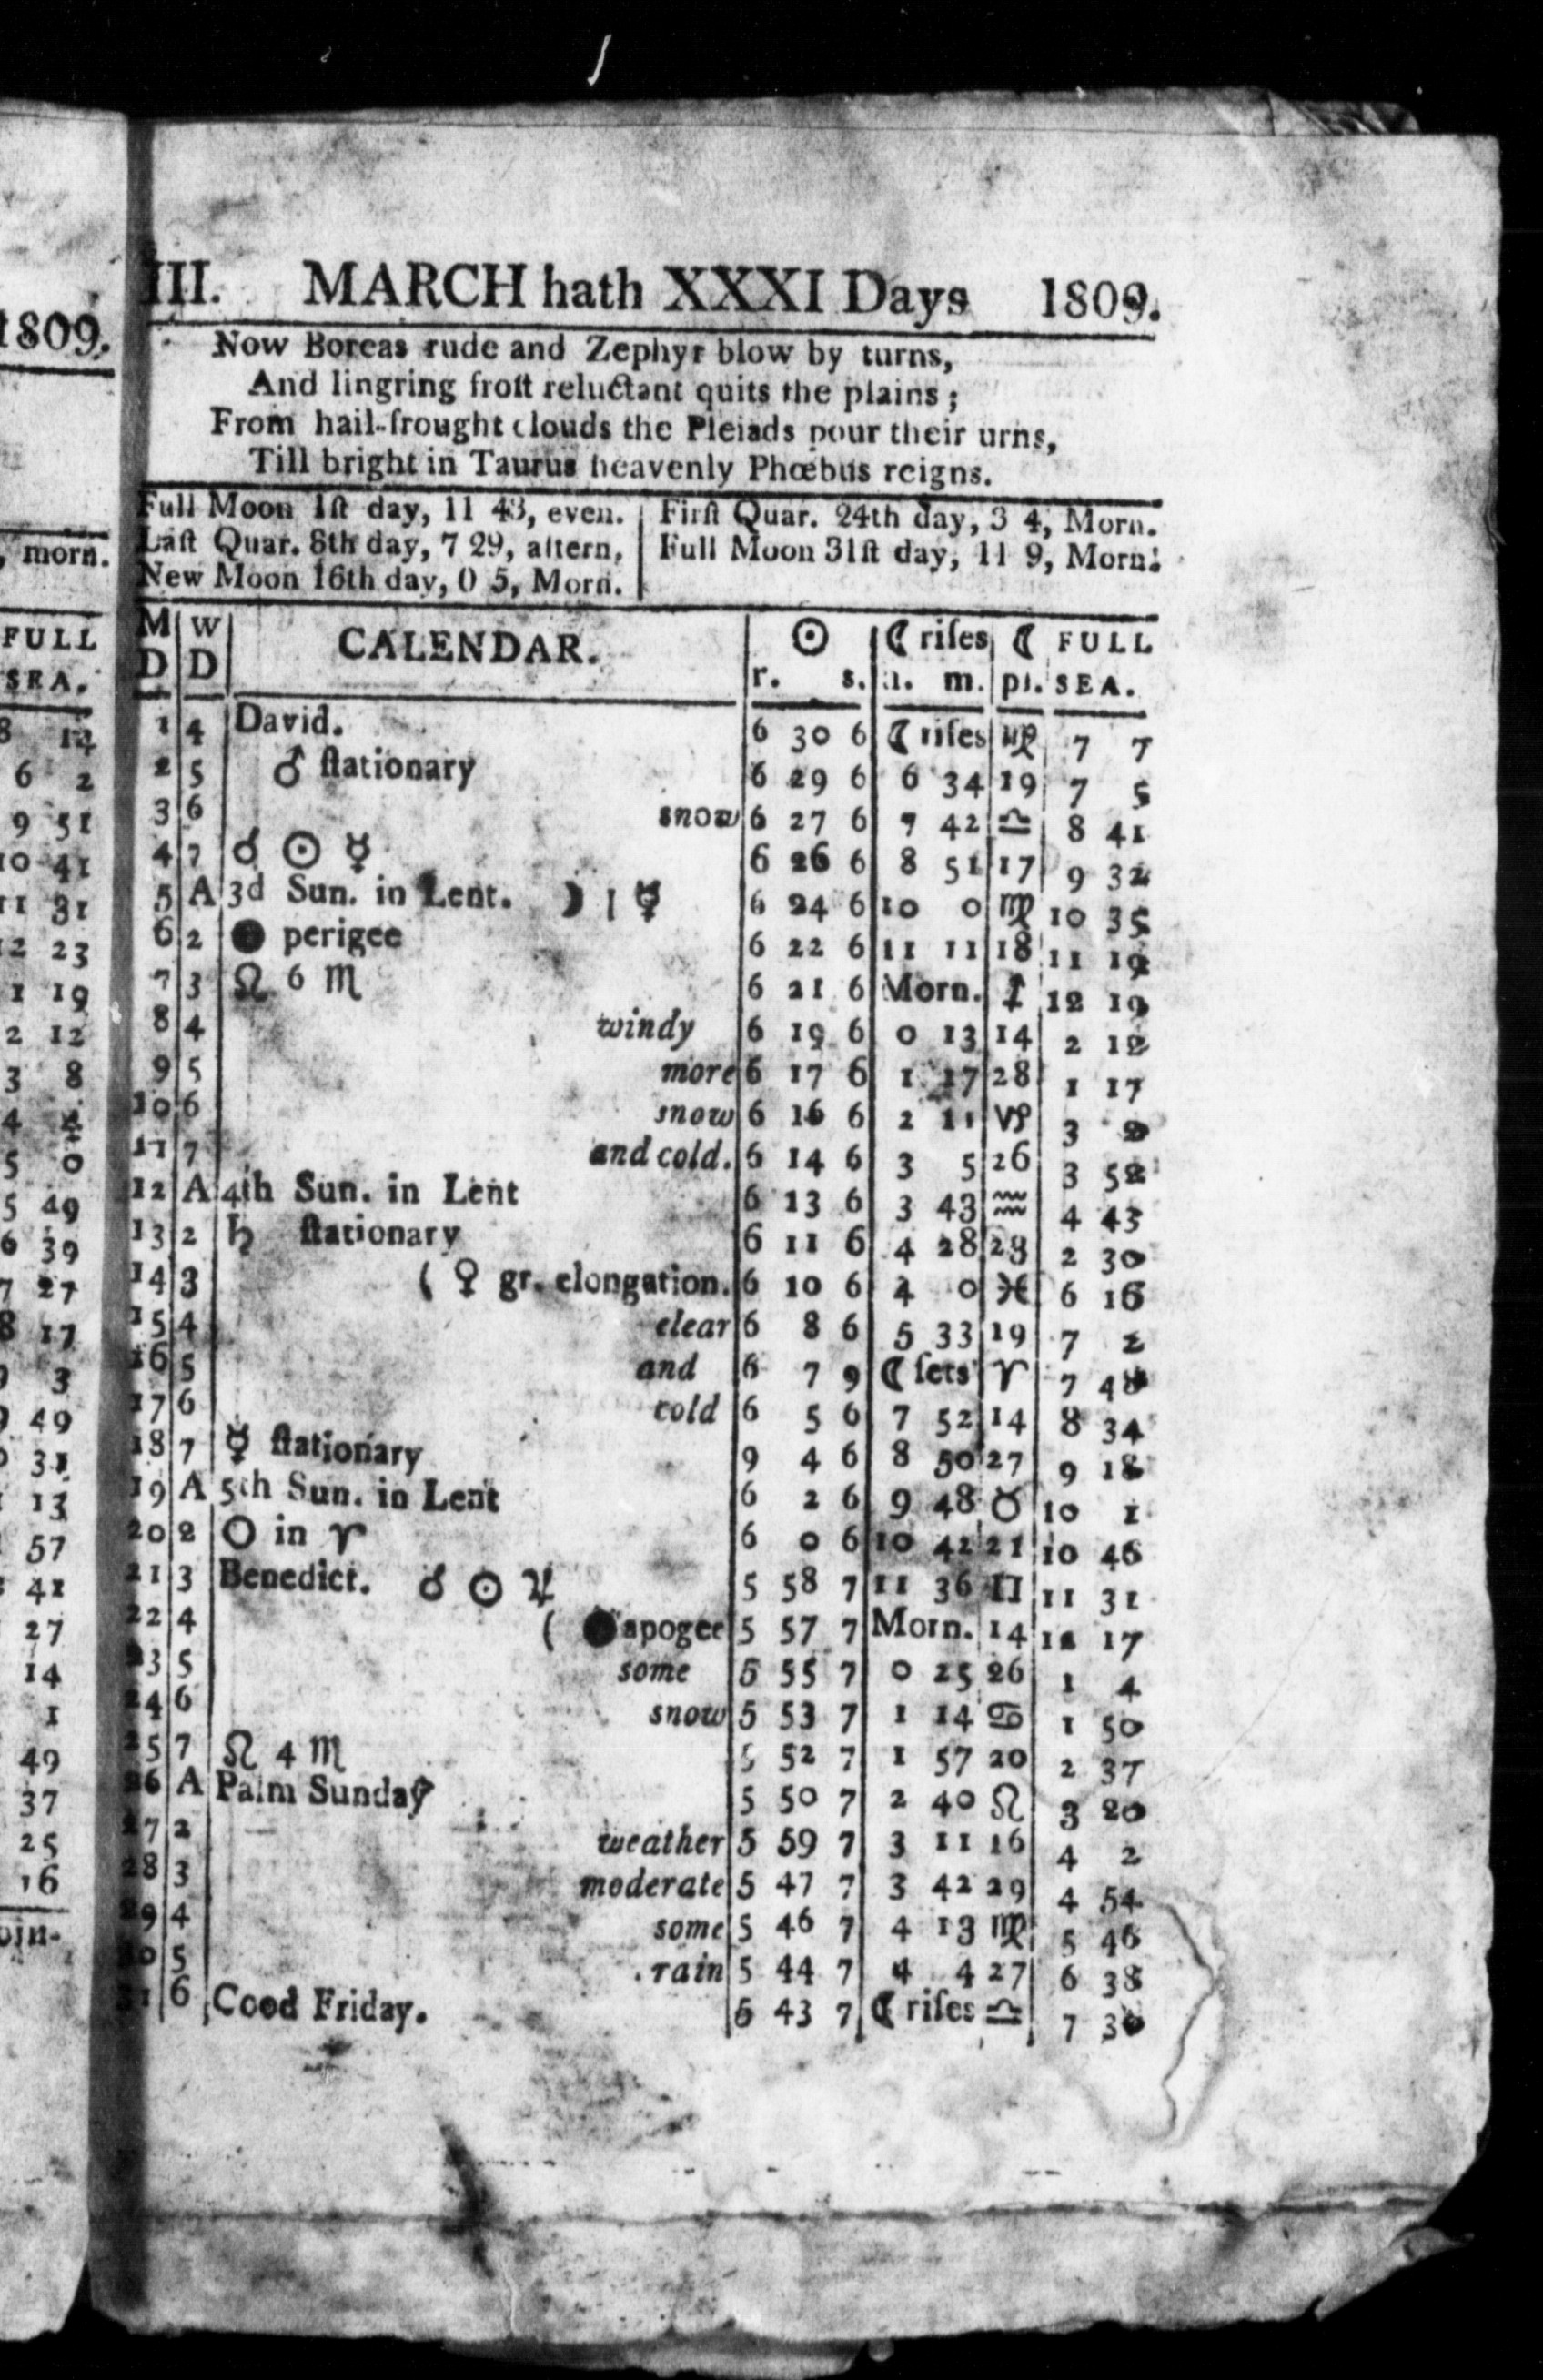 1809.
, morn.
FULL
SEA.
8 14
6 2
9 51
10 41
11 31
12 23
1 19
2 12
3 8
4 4
5 0
5 49
6 39
7 27
8 17
9 3
9 49
31
13
57
41
27
14
1
49
37
25
16
oin-
III. MARCH hath XXXI Days 1809.
Now Boreas rude and Zephyr blow by turns,
And lingring froſt reluctant quits the plains;
From hail-frought clouds the Pleiads pour their urns,
Till bright in Taurus heavenly Phœbus reigns.
Full Moon 1ſt day, 11 43, even.
Laſt Quar. 8th day, 7 29, aftern,
New Moon 16th day, 0 5, Morn.
Firſt Quar. 24th day, 3 4, Morn.
Full Moon 31ſt day, 11 9, Morn.
M W CALENDAR. ☉ ☾ riſes ☾ FULL
D D r. s. h. m. pl. SEA.
1 4 David. 6 30 6 ☾ riſes ♍ 7 7
2 5 ♂ ſtationary 6 29 6 6 34 19 7 5
3 6 snow 6 27 6 7 42 ♎ 8 41
4 7 ☌ ☉ ☿ 6 26 6 8 51 17 9 32
5 A 3d Sun. in Lent. ☽ | ☿ 6 24 6 10 0 ♍ 10 35
6 2 ● perigee 6 22 6 11 11 18 11 19
7 3 ☊ 6 ♏ 6 21 6 Morn. ♐ 12 19
8 4 windy 6 19 6 0 13 14 2 12
9 5 more 6 17 6 1 17 28 1 17
10 6 snow 6 16 6 2 11 ♑ 3 2
11 7 and cold. 6 14 6 3 5 26 3 52
12 A 4th Sun. in Lent 6 13 6 3 43 ♒ 4 43
13 2 ♄ ſtationary 6 11 6 4 28 23 2 30
14 3 ( ♀ gr. elongation. 6 10 6 4 0 ♓ 6 16
15 4 clear 6 8 6 5 33 19 7 2
16 5 and 6 7 9 ☾ ſets ♈ 7 48
17 6 cold 6 5 6 7 52 14 8 34
18 7 ☿ ſtationary 9 4 6 8 50 27 9 18
19 A 5th Sun. in Lent 6 2 6 9 48 ♉ 10 1
20 2 O in ♈ 6 0 6 10 42 21 10 46
21 3 Benedict. ☌ ☉ ♃ 5 58 7 11 36 ♊ 11 31
22 4 ( ● apogee 5 57 7 Morn. 14 12 17
23 5 some 5 55 7 0 25 26 1 4
24 6 snow 5 53 7 1 14 ♋ 1 50
25 7 ☊ 4 ♏ 5 52 7 1 57 20 2 37
26 A Palm Sunday 5 50 7 2 40 ♌ 3 20
27 2 weather 5 59 7 3 11 16 4 2
28 3 moderate 5 47 7 3 42 29 4 54
29 4 some 5 46 7 4 13 ♍ 5 46
30 5 rain 5 44 7 4 4 27 6 38
31 6 Cood Friday. 5 43 7 ☾ riſes ♎ 7 30